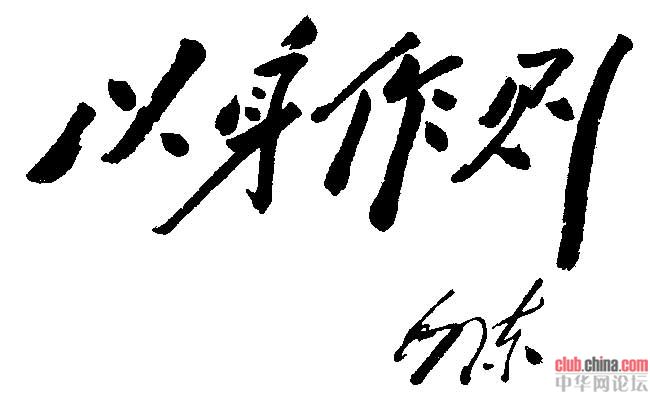 以身作则
club.china.com
中华网论坛